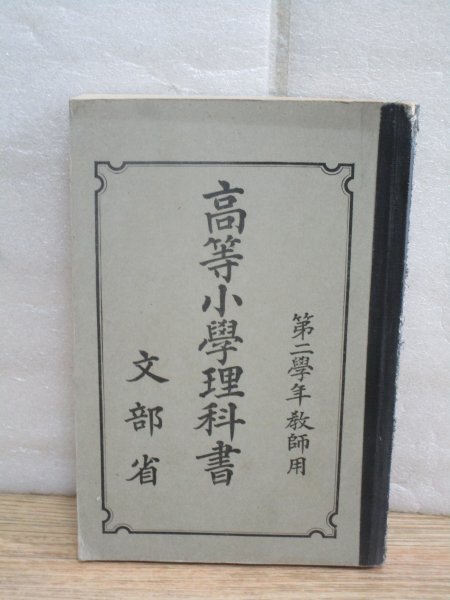 第二學年教師用
高等小學理科書
文部省